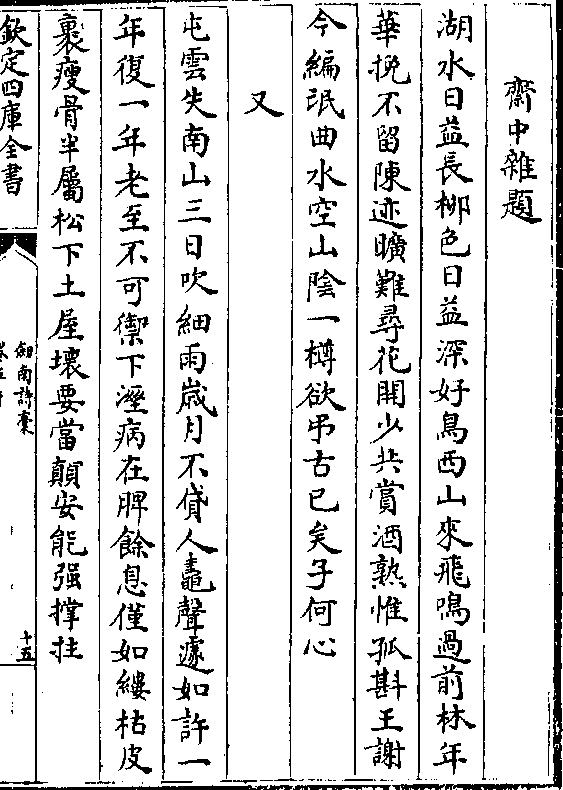 齋中雜題
湖水日益長栁色日益深好鳥西山來飛鳴過前林年
華挽不留陳迹曠難尋花開少共賞酒熟惟孤斟王謝
今編氓曲水空山陰一樽欲弔古已矣予何心
又
屯雲失南山三日吹細雨嵗月不貸人鼉聲遽如許一
年復一年老至不可禦下溼病在脾餘息僅如縷枯皮
裹瘦骨半屬松下土屋壊要當顛安能强撑拄
欽定四庫全書
劍南詩稾
十五